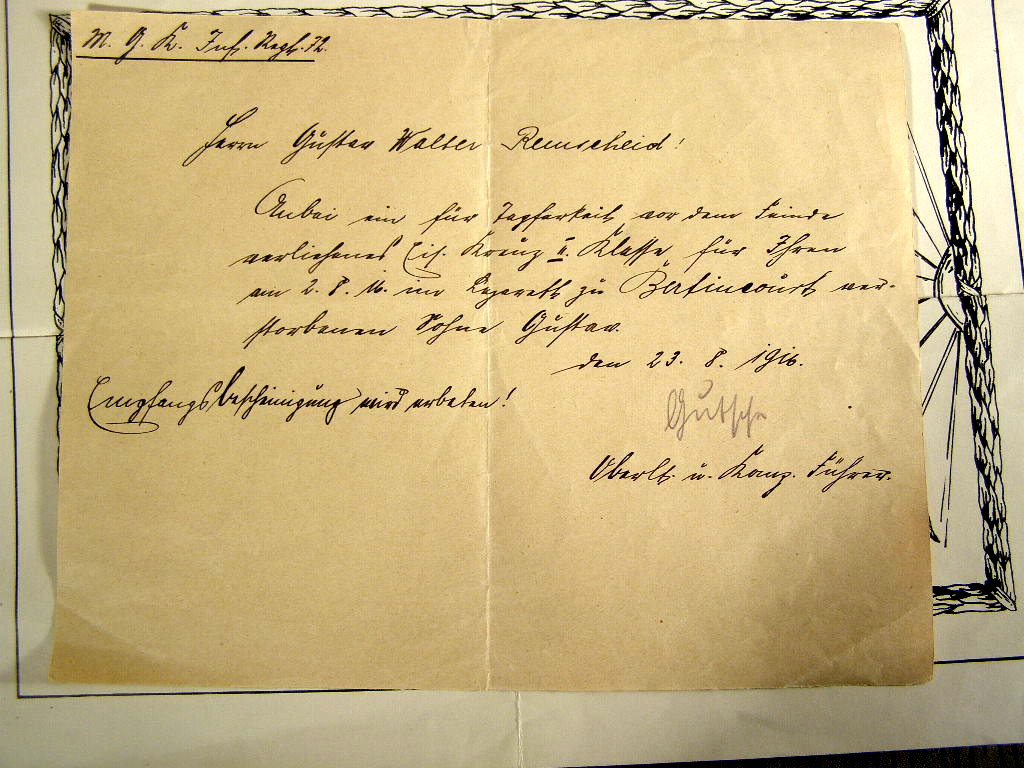 M. G. K. Inf. Regt. 72.
Herrn Gustav Walter Remscheid!
Anbei ein für Tapferkeit vor dem Feinde
verliehenes Eis. Kreuz II. Klasse, für Ihren
am 2. 8. 16. im Lazareth zu Bertincourt ver-
storbenen Sohne Gustav.
den 23. 8. 1916.
Empfangsbescheinigung wird erbeten!
Gutsche
Oberlt. u. Komp. Führer.